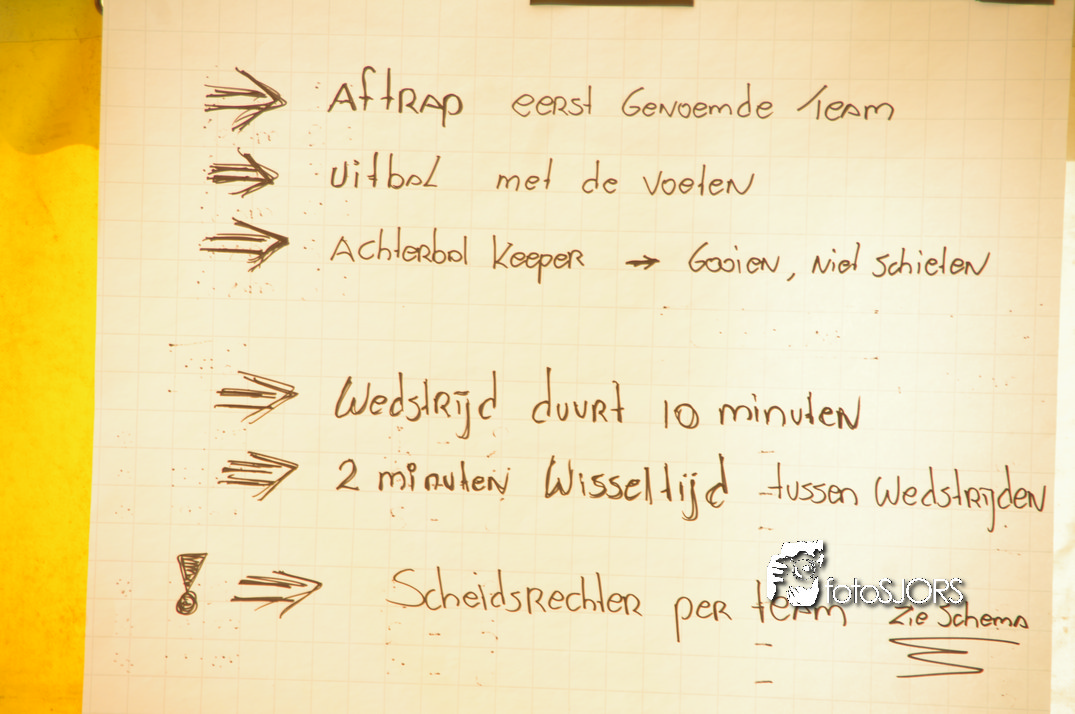 ⇒ Aftrap eerst Genoemde Team
⇒ Uitbal met de voeten
⇒ Achterbal Keeper → Gooien, niet schieten
⇒ Wedstrijd duurt 10 minuten
⇒ 2 minuten Wisseltijd tussen Wedstrijden
! ⇒ Scheidsrechter per team zie schema
fotoSJORS